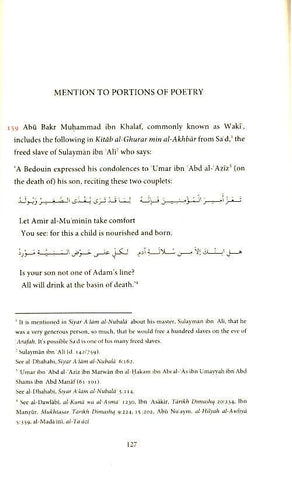 MENTION TO PORTIONS OF POETRY
159 Abū Bakr Muḥammad ibn Khalaf, commonly known as Wakīʿ,
includes the following in Kitāb al-Ghurar min al-Akhbār from Saʿd,¹ the
freed slave of Sulaymān ibn ʿAlī² who says:
ʿA Bedouin expressed his condolences to ʿUmar ibn ʿAbd al-ʿAzīz³ (on
the death of) his son, reciting these two couplets:
تَعَزَّ أَمِيرَ الْمُؤْمِنِينَ فَإِنَّهُ لِمَا قَدْ تَرَى يُغْذَى الصَّغِيرُ وَيُولَدُ
Let Amir al-Mu'minīn take comfort
You see: for this a child is nourished and born.
هَلِ ابْنُكَ إِلَّا مِنْ سُلَالَةِ آدَمٍ لِكُلٍّ عَلَى حَوْضِ الْمَنِيَّةِ مَوْرِدُ
Is your son not one of Adam's line?
All will drink at the basin of death.'⁴
¹ It is mentioned in Siyar Aʿlām al-Nubalāʾ about his master, Sulaymān ibn ʿAlī, that he
was a very generous person, so much, that he would free a hundred slaves on the eve of
Arafah. It's possible Saʿd is one of his many freed slaves.
² Sulaymān ibn ʿAlī (d. 142/759).
See al-Dhahabī, Siyar Aʿlām al-Nubalāʾ 6:162.
³ ʿUmar ibn ʿAbd al-ʿAzīz ibn Marwān ibn al-Ḥakam ibn Abī al-ʿĀṣ ibn Umayyah ibn ʿAbd
Shams ibn ʿAbd Manāf (61-101).
See al-Dhahabī, Siyar Aʿlām al-Nubalāʾ 5:114.
⁴ See al-Dawlābī, al-Kunā wa al-Asmāʾ 1230, Ibn ʿAsākir, Tārīkh Dimashq 20:234, Ibn
Manẓūr, Mukhtasar Tārīkh Dimashq 9:224; 15:202, Abū Nuʿaym, al-Ḥilyah al-Awliyā
5:359, al-Madāʾinī, al-Taʿāzī
127